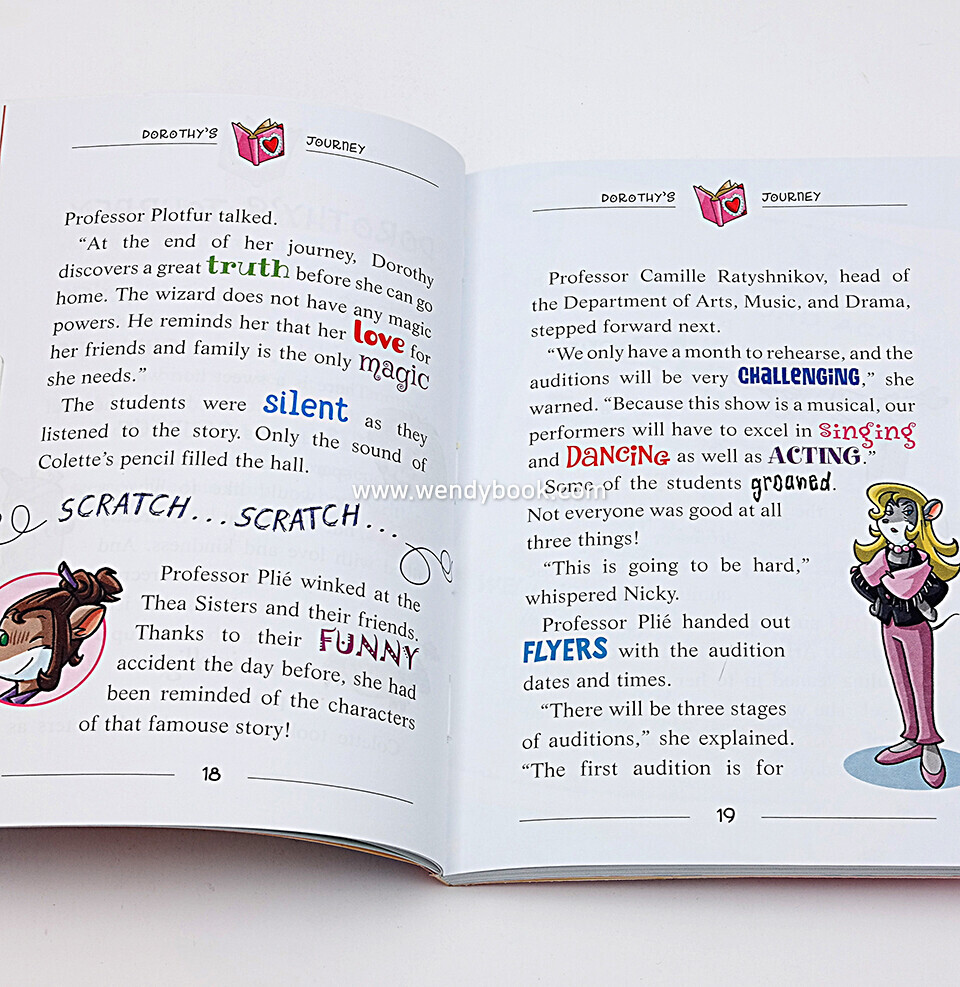 DOROTHY'S JOURNEY
Professor Plotfur talked.
“At the end of her journey, Dorothy
discovers a great truth before she can go
home. The wizard does not have any magic
powers. He reminds her that her love for
her friends and family is the only magic
she needs.”
The students were silent as they
listened to the story. Only the sound of
Colette's pencil filled the hall.
SCRATCH... SCRATCH...
Professor Plié winked at the
Thea Sisters and their friends.
Thanks to their FUNNY
accident the day before, she had
been reminded of the characters
of that famouse story!
18
DOROTHY'S JOURNEY
Professor Camille Ratyshnikov, head of
the Department of Arts, Music, and Drama,
stepped forward next.
“We only have a month to rehearse, and the
auditions will be very CHALLENGING,” she
warned. “Because this show is a musical, our
performers will have to excel in singing
and DANCING as well as ACTING.”
Some of the students groaned.
Not everyone was good at all
three things!
“This is going to be hard,”
whispered Nicky.
Professor Plié handed out
FLYERS with the audition
dates and times.
“There will be three stages
of auditions,” she explained.
“The first audition is for
19
www.wendybook.com